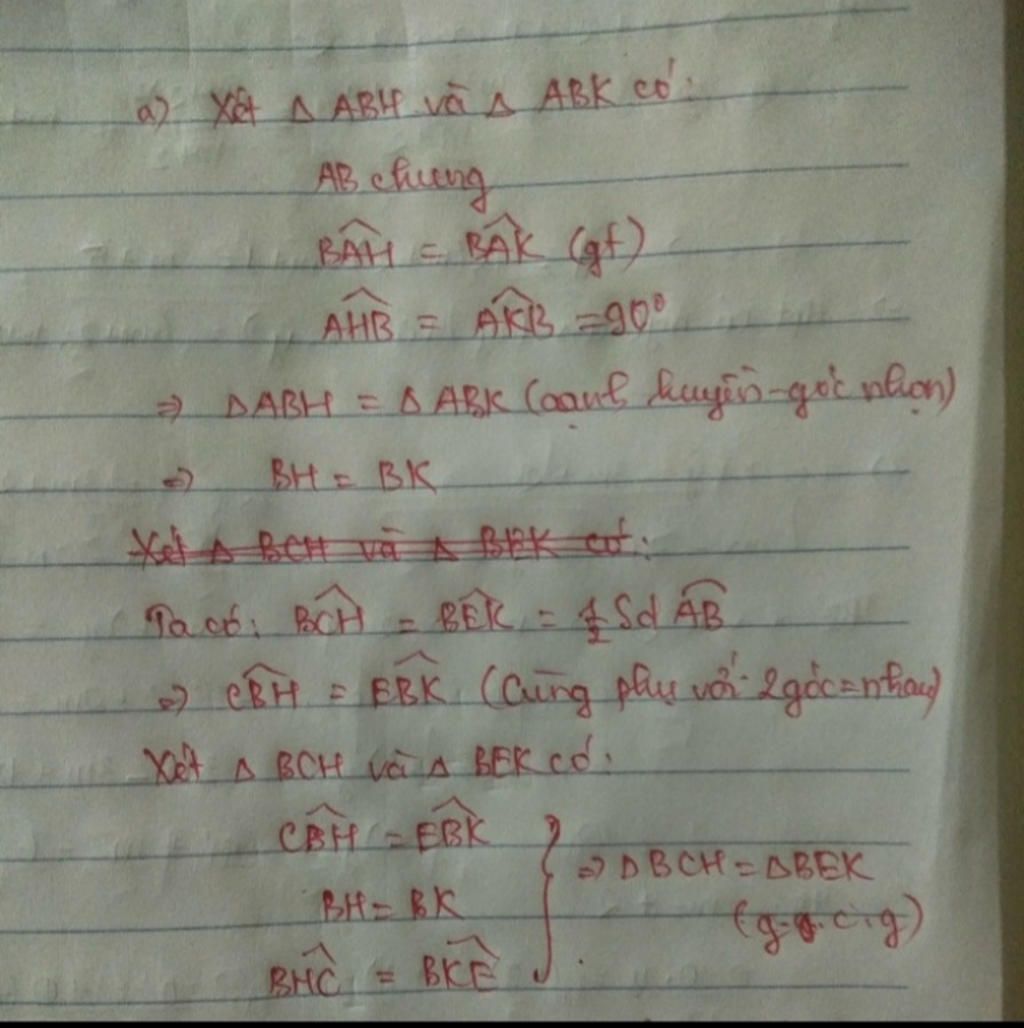 a) Xét Δ ABH và Δ ABK có:
AB chung
BAH^ = BAK^ (gt)
AHB^ = AKB^ = 90°
⇒ ΔABH = ΔABK (cạnh huyền-góc nhọn)
⇒ BH = BK
Xét Δ BCH và Δ BEK có:
Ta có: BCH^ = BEK^ = 1/2 Sđ AB⌒
⇒ CBH^ = EBK^ (Cùng phụ với 2góc=nhau)
Xét Δ BCH và Δ BEK có:
CBH^ = EBK^
BH = BK
BHC^ = BKE^
⇒ ΔBCH = ΔBEK
(g.c.g)